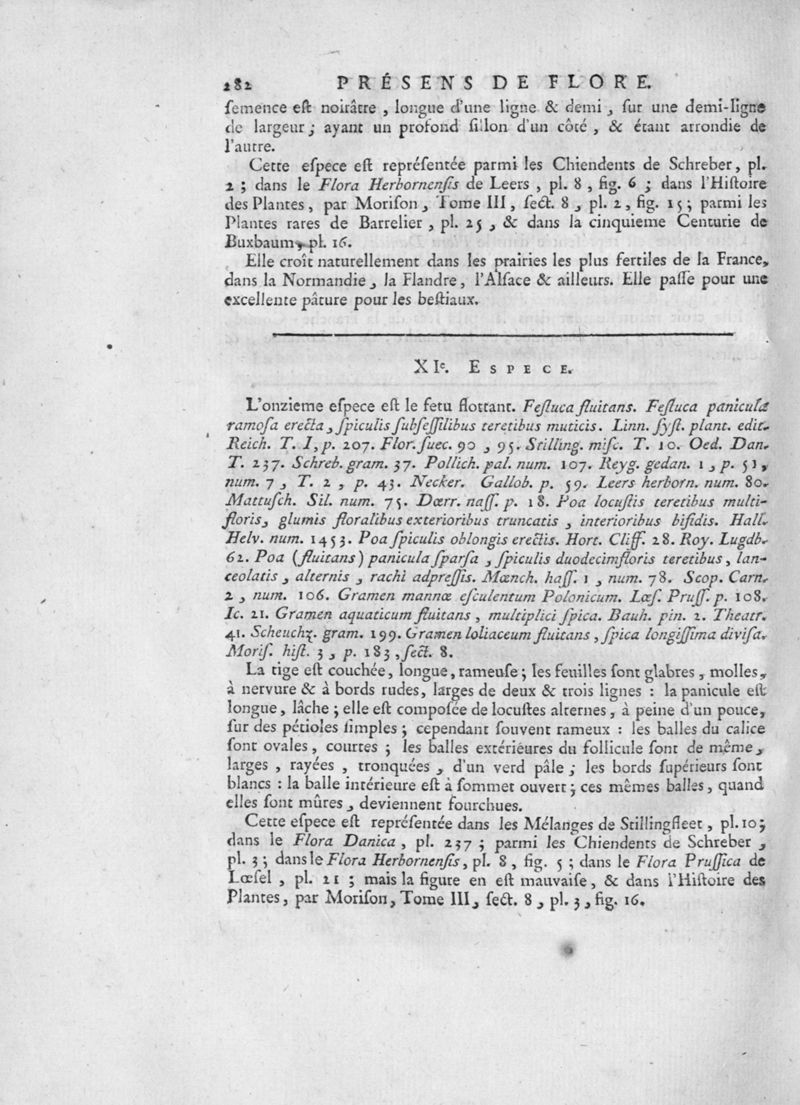 282 PRÉSENS DE FLORE.
ſemence eſt noirâtre, longue d'une ligne & demi, ſur une demi-ligne
de largeur; ayant un profond ſillon d'un côté, & étant arrondie de
l'autre.
Cette eſpece eſt repréſentée parmi les Chiendents de Schreber, pl.
2; dans le Flora Herbornenſis de Leers, pl. 8, fig. 6; dans l'Hiſtoire
des Plantes, par Moriſon, Tome III, ſect. 8, pl. 2, fig. 15; parmi les
Plantes rares de Barrelier, pl. 25, & dans la cinquieme Centurie de
Buxbaum, pl. 16.
Elle croît naturellement dans les prairies les plus fertiles de la France,
dans la Normandie, la Flandre, l'Alſace & ailleurs. Elle paſſe pour une
excellente pâture pour les beſtiaux.
XIe. ESPECE.
L'onzieme eſpece eſt le fetu flottant. Feſtuca fluitans. Feſtuca paniculâ
ramoſa erecta, ſpiculis ſubſeſſilibus teretibus muticis. Linn. ſyſt. plant. edit.
Reich. T. I, p. 207. Flor. ſuec. 90, 95. Stilling. miſc. T. 10. Oed. Dan.
T. 237. Schreb. gram. 37. Pollich. pal. num. 107. Reyg. gedan. 1, p. 51,
num. 7, T. 2, p. 43. Necker. Gallob. p. 59. Leers herborn. num. 80.
Mattuſch. Sil. num. 75. Dœrr. naſſ. p. 18. Poa locuſtis teretibus multi-
floris, glumis floralibus exterioribus truncatis, interioribus bifidis. Hall.
Helv. num. 1453. Poa ſpiculis oblongis erectis. Hort. Cliff. 28. Roy. Lugdb.
62. Poa (fluitans) panicula ſparſa, ſpiculis duodecimfloris teretibus, lan-
ceolatis, alternis, rachi adpreſſis. Mœnch. haſſ. 1, num. 78. Scop. Carn.
2, num. 106. Gramen mannœ eſculentum Polonicum. Lœſ. Pruſſ. p. 108.
Ic. 21. Gramen aquaticum fluitans, multiplici ſpica. Bauh. pin. 2. Theatr.
41. Scheuchz. gram. 199. Gramen loliaceum fluitans, ſpica longiſſima diviſa.
Moriſ. hiſt. 3, p. 183, ſect. 8.
La tige eſt couchée, longue, rameuſe; les feuilles ſont glabres, molles,
à nervure & à bords rudes, larges de deux & trois lignes : la panicule eſt
longue, lâche; elle eſt compoſée de locuſtes alternes, à peine d'un pouce,
ſur des pétioles ſimples; cependant ſouvent rameux : les balles du calice
ſont ovales, courtes; les balles extérieures du follicule ſont de même,
larges, rayées, tronquées, d'un verd pâle; les bords ſupérieurs ſont
blancs : la balle intérieure eſt à ſommet ouvert; ces mêmes balles, quand
elles ſont mûres, deviennent fourchues.
Cette eſpece eſt repréſentée dans les Mélanges de Stillingfleet, pl. 10;
dans le Flora Danica, pl. 237; parmi les Chiendents de Schreber,
pl. 3; dans le Flora Herbornenſis, pl. 8, fig. 5; dans le Flora Pruſſica de
Lœſel, pl. 21; mais la figure en eſt mauvaiſe, & dans l'Hiſtoire des
Plantes, par Moriſon, Tome III, ſect. 8, pl. 3, fig. 16.